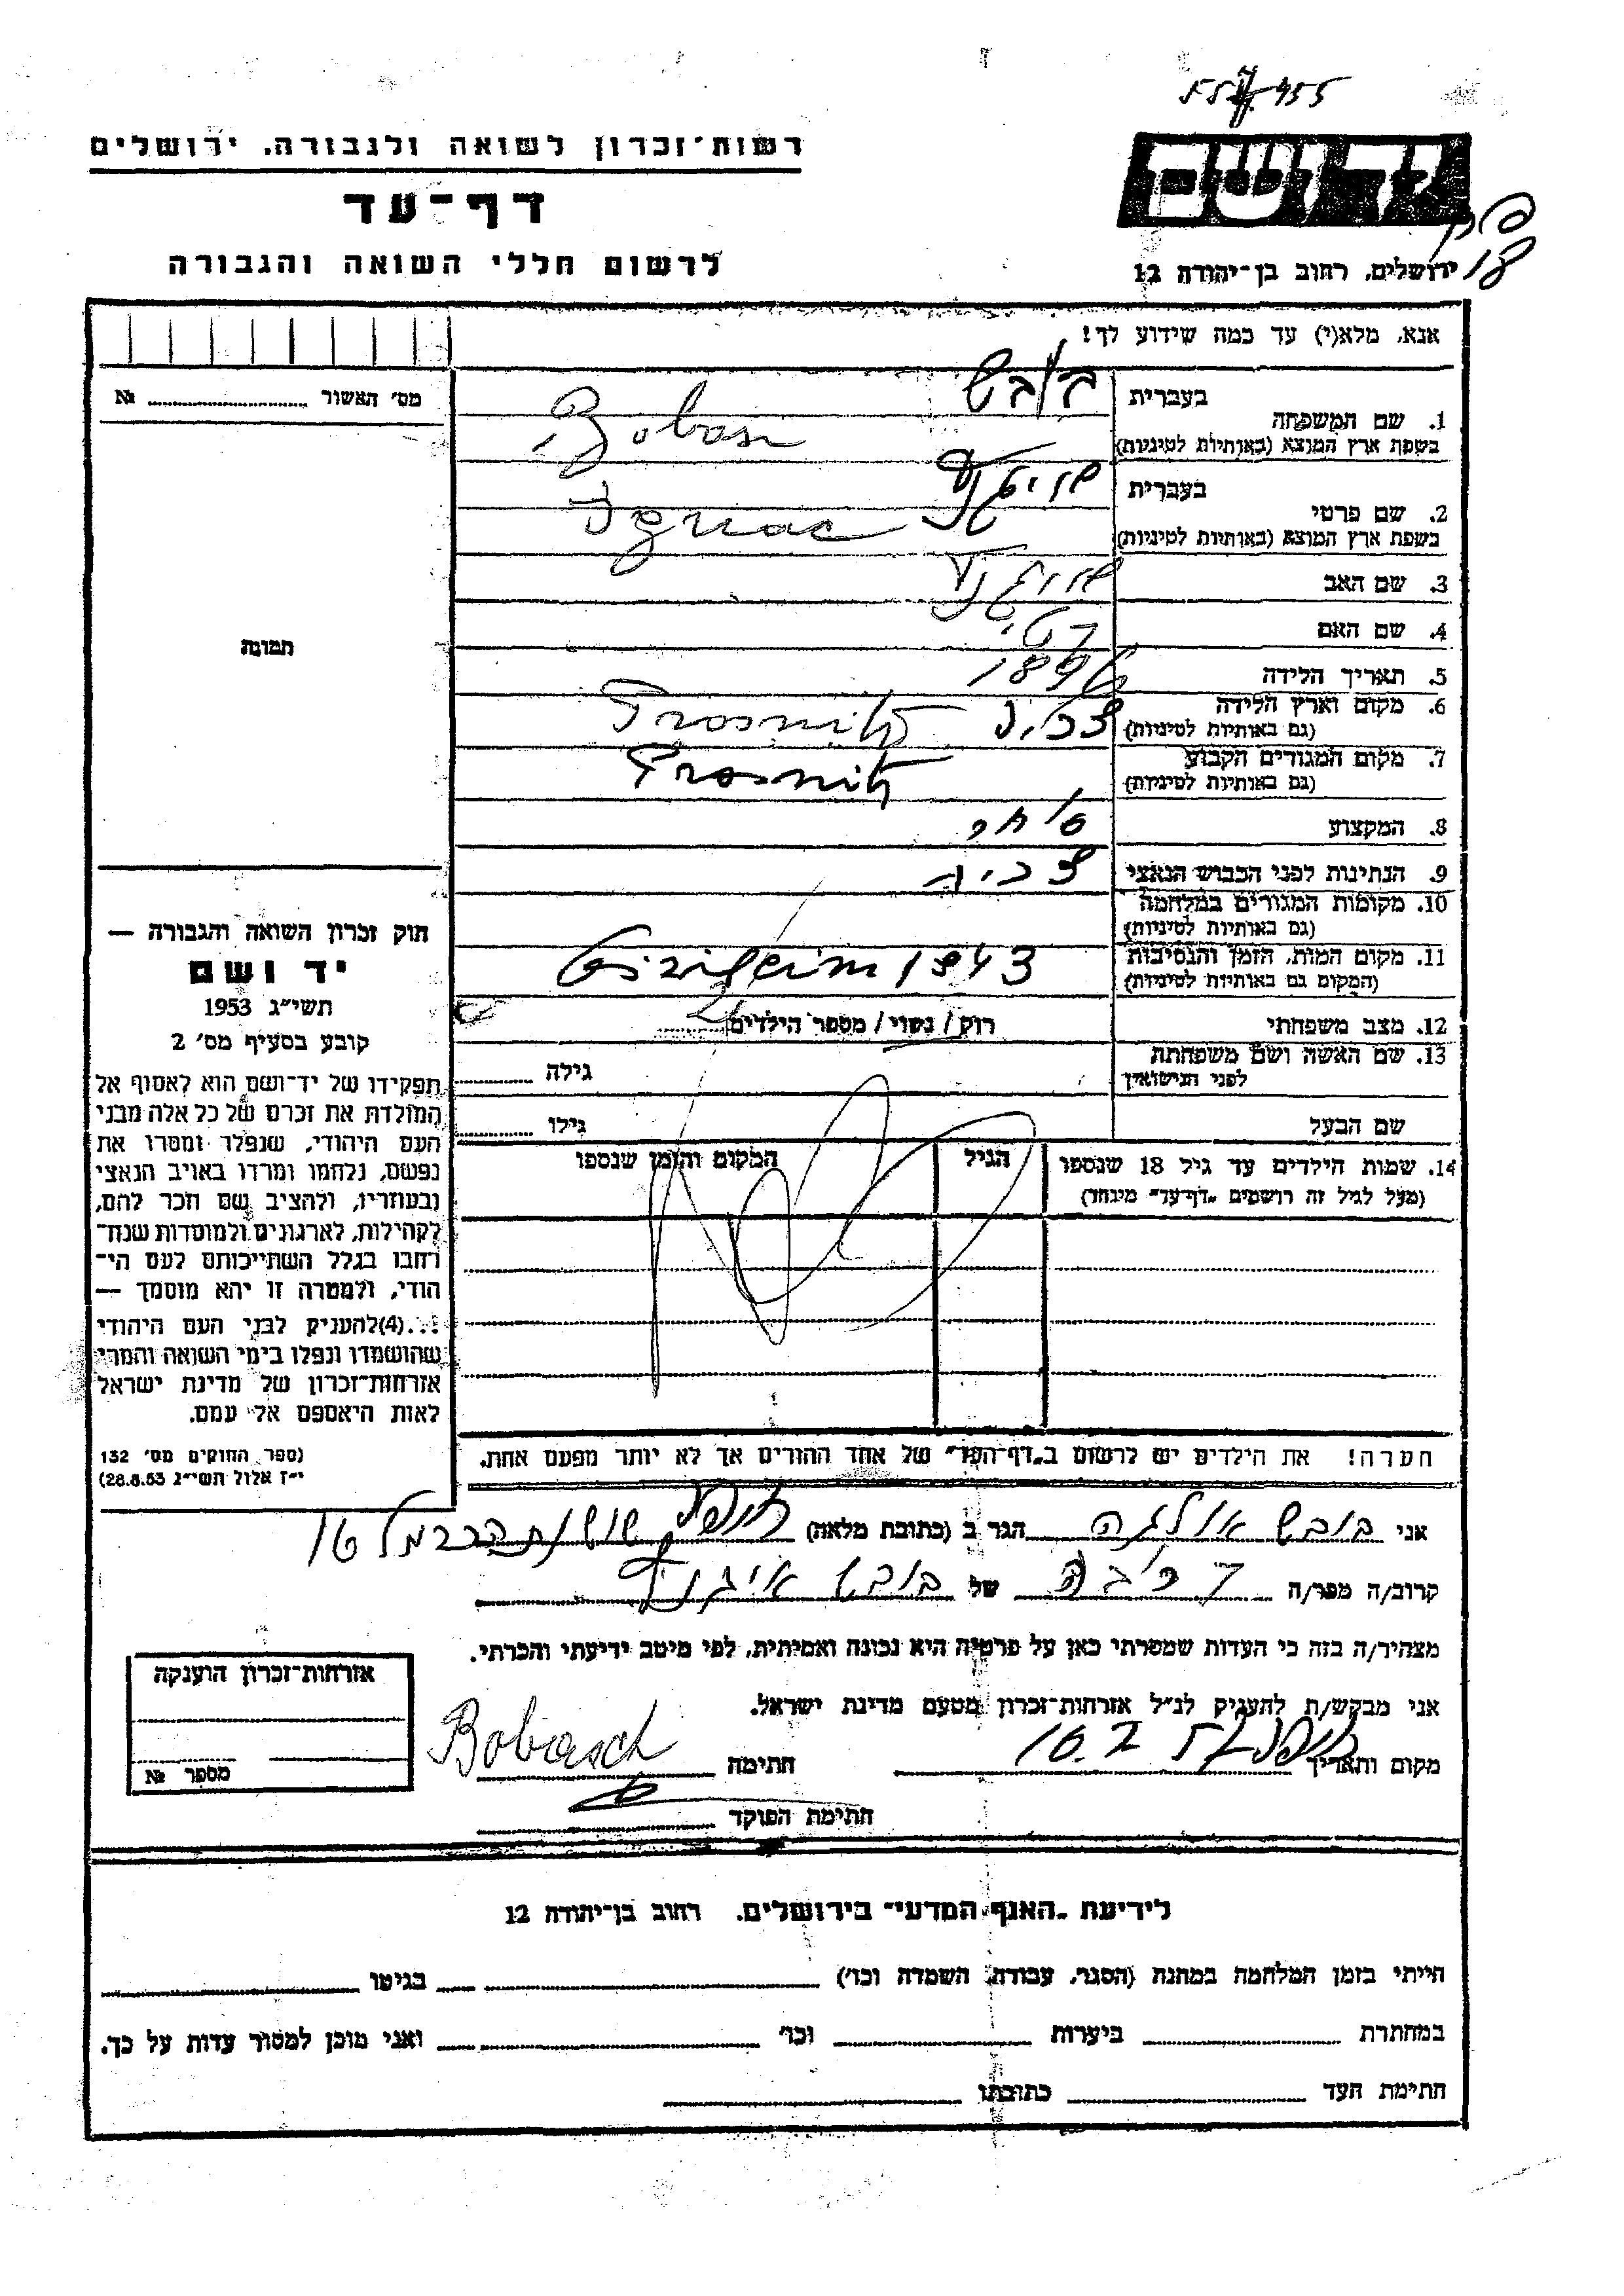 רשות-זכרון לשואה ולגבורה, ירושלים
דף-עד
לרשום חללי השואה והגבורה
ירושלים, רחוב בן-יהודה 12
אנא, מלא(י) עד כמה שידוע לך!
מס' האשור № 
תמונה
1. שם המשפחה
בעברית בובש
בשפת ארץ המוצא (באותיות לטיניות) Bobasch
2. שם פרטי
בעברית
בשפת ארץ המוצא (באותיות לטיניות) Ignac
3. שם האב
4. שם האם
5. תאריך הלידה 1896
6. מקום וארץ הלידה
(גם באותיות לטיניות) צ.כ.יה Prosnitz
7. מקום המגורים הקבוע
(גם באותיות לטיניות) Prosnitz
8. המקצוע
9. הנתינות לפני הכבוש הנאצי
10. מקומות המגורים במלחמה
(גם באותיות לטיניות)
11. מקום המות, הזמן והנסיבות
(המקום גם באותיות לטיניות) 1943
12. מצב משפחתי רוק / נשוי / מספר הילדים
13. שם האשה ושם משפחתה
לפני הנישואין גילה
שם הבעל גילו
14. שמות הילדים עד גיל 18 שנספו
(מעל לגיל זה רושמים "דף-עד" מיוחד)
הגיל
המקום והזמן שנספו
הערה! את הילדים יש לרשום ב"דף-העד" של אחד ההורים אך לא יותר מפעם אחת.
חוק זכרון השואה והגבורה —
יד ושם
תשי"ג 1953
קובע בסעיף מס' 2
תפקידו של יד-ושם הוא לאסוף אל
המולדת את זכרם של כל אלה מבני
העם היהודי, שנפלו ומסרו את
נפשם, נלחמו ומרדו באויב הנאצי
ובעוזריו, ולהציב שם וזכר להם,
לקהילות, לארגונים ולמוסדות שנח-
רבו בגלל השתייכותם לעם הי-
הודי, ולמטרה זו יהא מוסמך —
...(4)להעניק לבני העם היהודי
שהושמדו ונפלו בימי השואה והמרי
אזרחות-זכרון של מדינת ישראל
לאות היאספם אל עמם.
(ספר החוקים מס' 132
י"ז אלול תשי"ג 28.8.53)
אני בובש אולגה הגר ב (כתובת מלאה) חיפה, שושנת הכרמל 10
קרוב/ה מפר/ה של בובש
מצהיר/ה בזה כי העדות שמסרתי כאן על פרטיה היא נכונה ואמיתית, לפי מיטב ידיעתי והכרתי.
אני מבקש/ת להעניק לנ"ל אזרחות-זכרון מטעם מדינת ישראל.
מקום ותאריך חתימה Bobasch
חתימת הפוקד
אזרחות-זכרון הוענקה
מספר №
לידיעת "האגף המדעי" בירושלים, רחוב בן-יהודה 12
הייתי בזמן המלחמה במחנה (הסגר, עבודה, השמדה וכו') בגיטו
במחתרת ביערות וכו' ואני מוכן למסור עדות על כך.
חתימת העד כתובתו